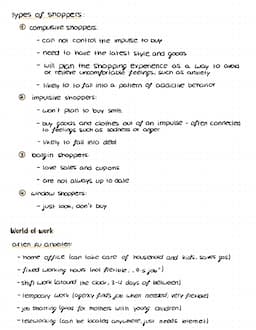 types of shoppers:
① compulsive shoppers:
- can not control the impulse to buy
- need to have the latest style and goods
- will plan the shopping experience as a way to avoid
or relieve uncomfortable feelings, such as anxiety
- likely to fall into a pattern of addictive behavior
② impulsive shoppers:
- won't plan to buy smth.
- buy goods and clothes out of an impulse - often connected
to feelings such as sadness or anger
- likely to fall into debt
③ bargain shoppers:
- love sales and cupons
- are not always up to date
④ window shoppers:
- just look, don't buy
World of work
- home office (can take care of household and kids, saves gas)
- fixed working hours (not flexible, "9-5 job")
- shift work (around the clock, 3-4 days off between)
- temporary work (agency finds job when needed, very flexible)
- job sharing (good for mothers with young children)
- teleworking (can be located anywhere, just needs internet)